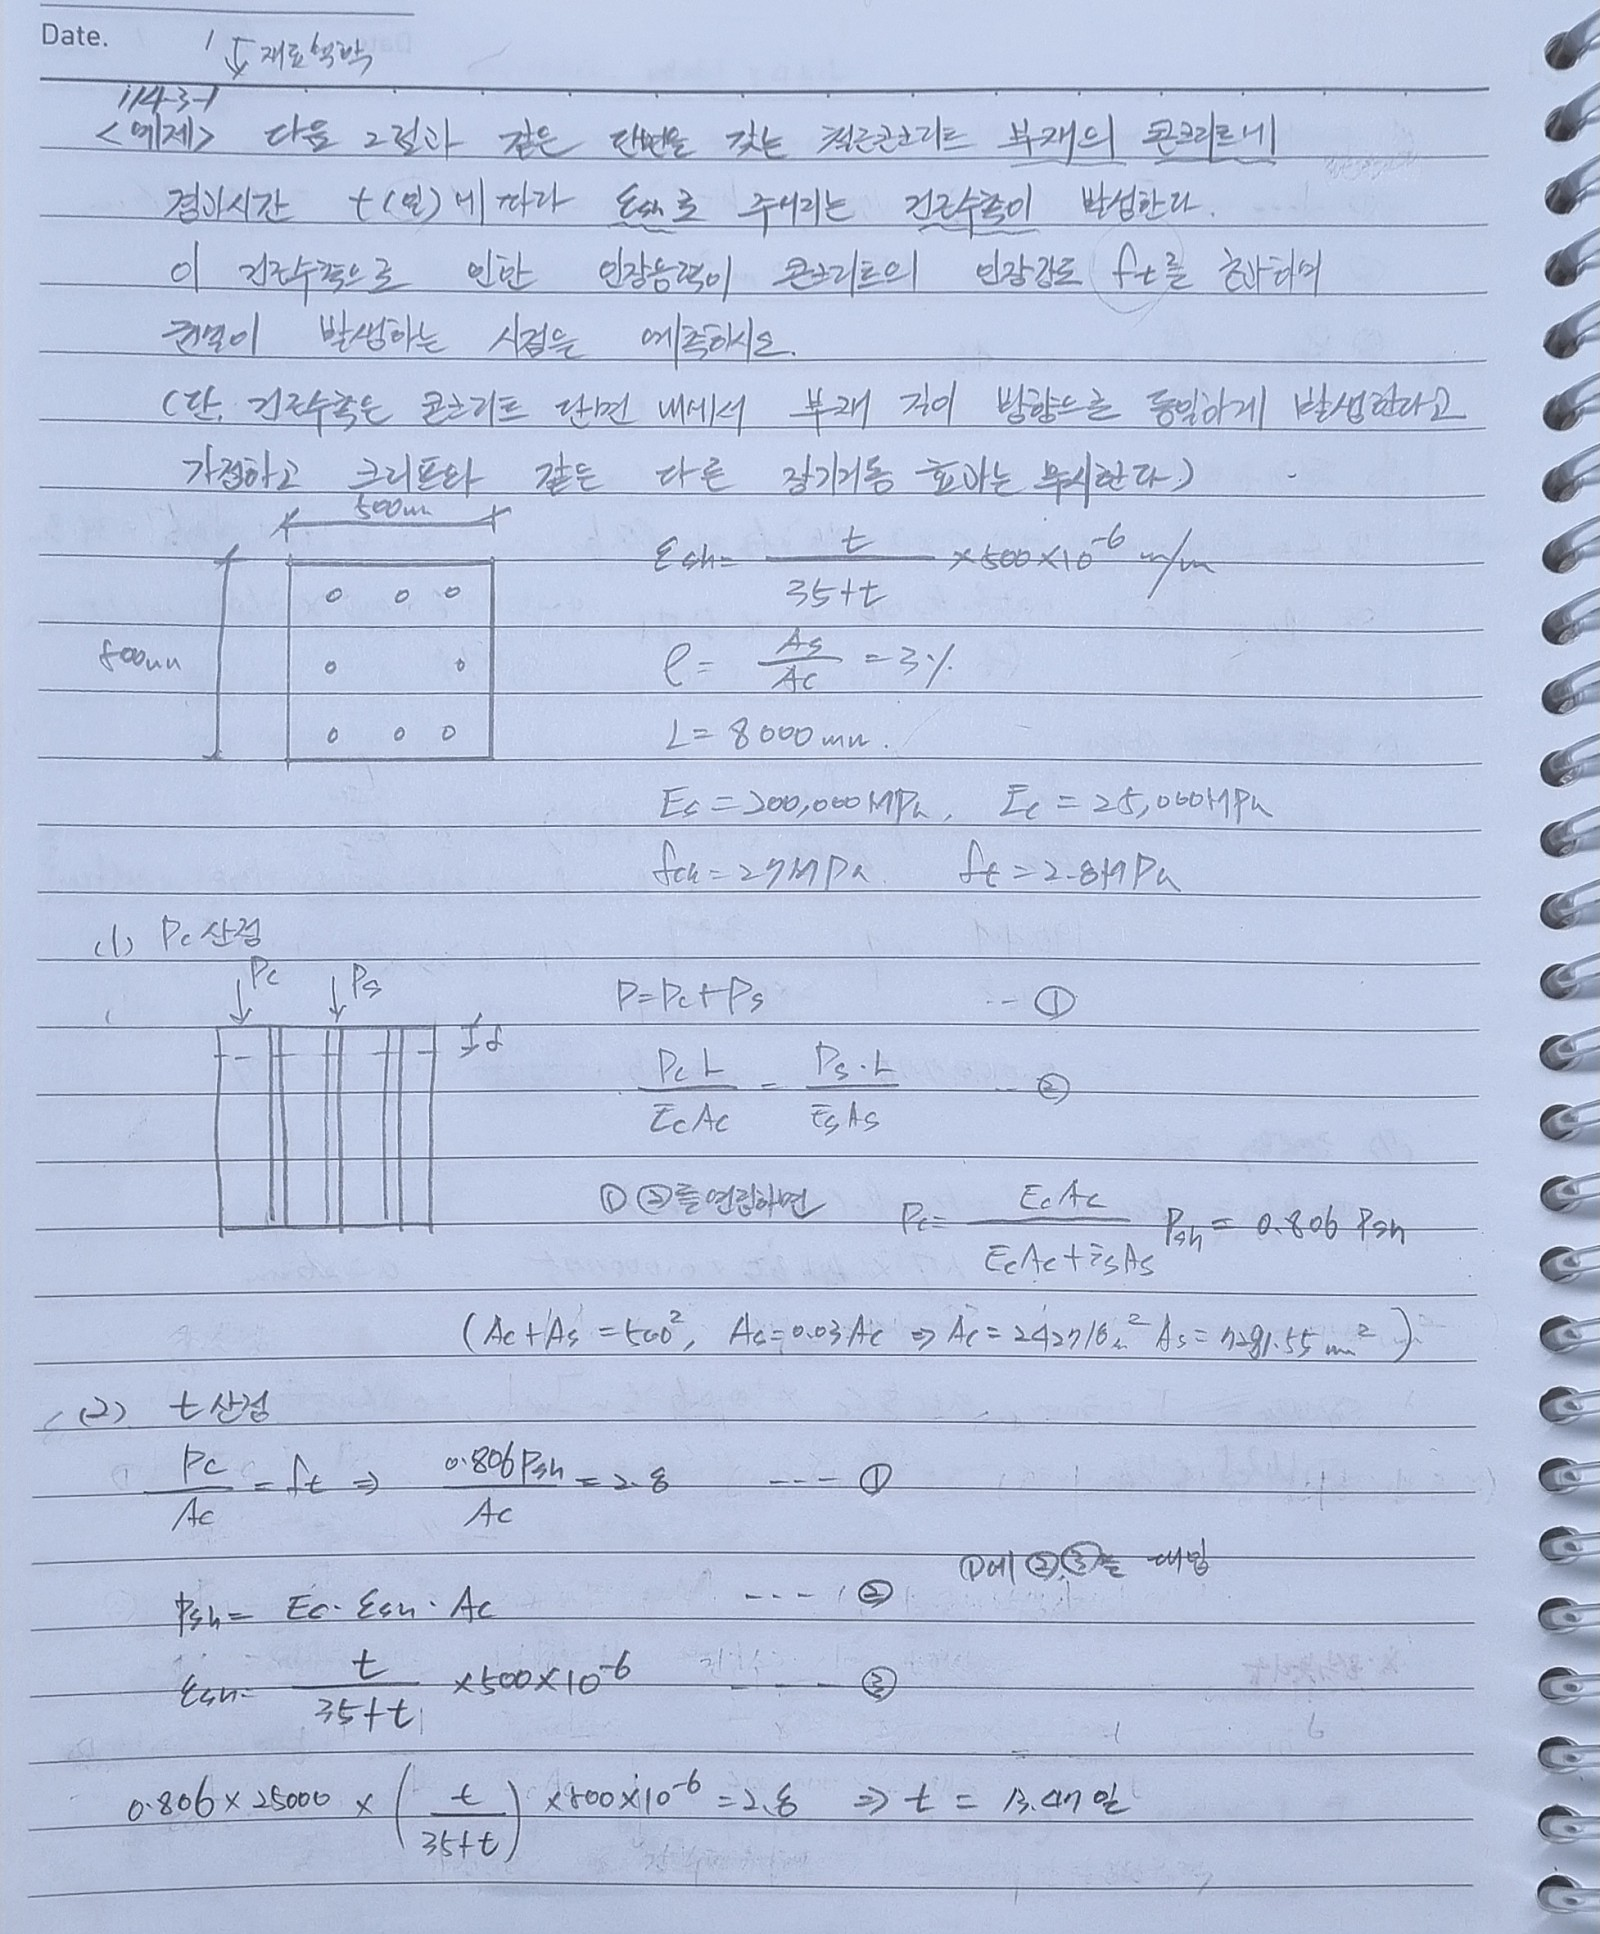 Date. / ↓ 재료역학
114-3-1
<예제> 다음 그림과 같은 단면을 갖는 철근콘크리트 부재의 콘크리트에
경과시간 t(일)에 따라 εsh로 주어지는 건조수축이 발생한다.
이 건조수축으로 인한 인장응력이 콘크리트의 인장강도 ft를 초과하며
균열이 발생하는 시점을 예측하시오.
(단, 건조수축은 콘크리트 단면 내에서 부재 길이 방향으로 동일하게 발생한다고
가정하고 크리프와 같은 다른 장기거동 효과는 무시한다)
500mm
εsh = t/(35+t) × 500×10⁻⁶ m/m
500mm
ρ = As/Ac = 3%
L = 8000mm.
Es = 200,000MPa, Ec = 25,000MPa
fck = 27MPa. ft = 2.8MPa
(1) Pc 산정
Pc Ps
P = Pc + Ps -- ①
δ
PcL/EcAc = Ps·L/EsAs -- ②
① ②를 연립하면 Pc = EcAc/(EcAc+EsAs) Psh = 0.806 Psh
(Ac+As = 500², As = 0.03Ac ⇒ Ac = 242718㎟ As = 7281.55㎟)
(2) t 산정
Pc/Ac = ft ⇒ 0.806Psh/Ac = 2.8 --- ①
①에 ②③을 대입
Psh = Ec·εsh·Ac ---- ②
εsh = t/(35+t) ×500×10⁻⁶ ---- ③
0.806 × 25000 × (t/(35+t)) ×500×10⁻⁶ = 2.8 ⇒ t = 13.47일